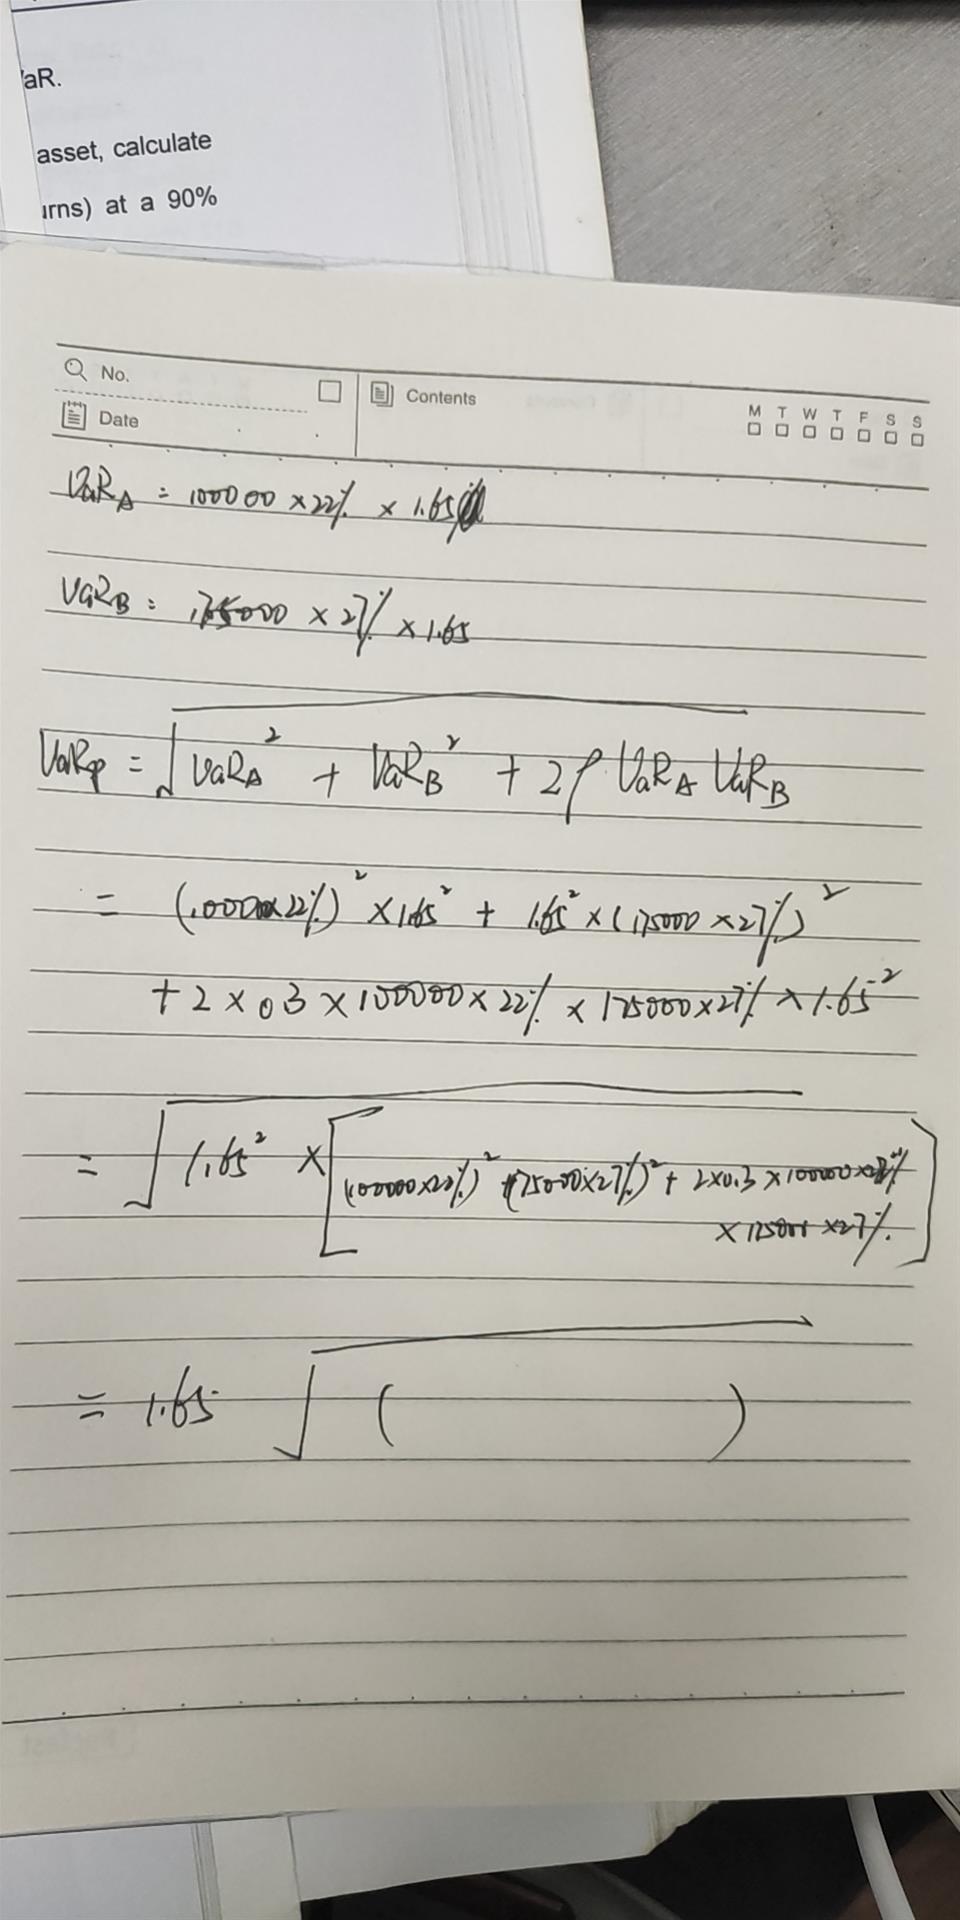 aR.
asset, calculate
urns) at a 90%
No.
Contents
M T W T F S S
Date
VaR_A = 100000 × 22% × 1.65
VaR_B = 175000 × 27% × 1.65
VaR_p = √ VaR_A² + VaR_B² + 2ρ VaR_A VaR_B
= (100000×22%)² × 1.65² + 1.65² × (175000 × 27%)²
+ 2 × 0.3 × 100000 × 22% × 175000 × 27% × 1.65²
= √ 1.65² × [ (100000×22%)² + (175000×27%)² + 2×0.3 × 100000 × 22%
× 175000 × 27% ]
= 1.65 √ ( )